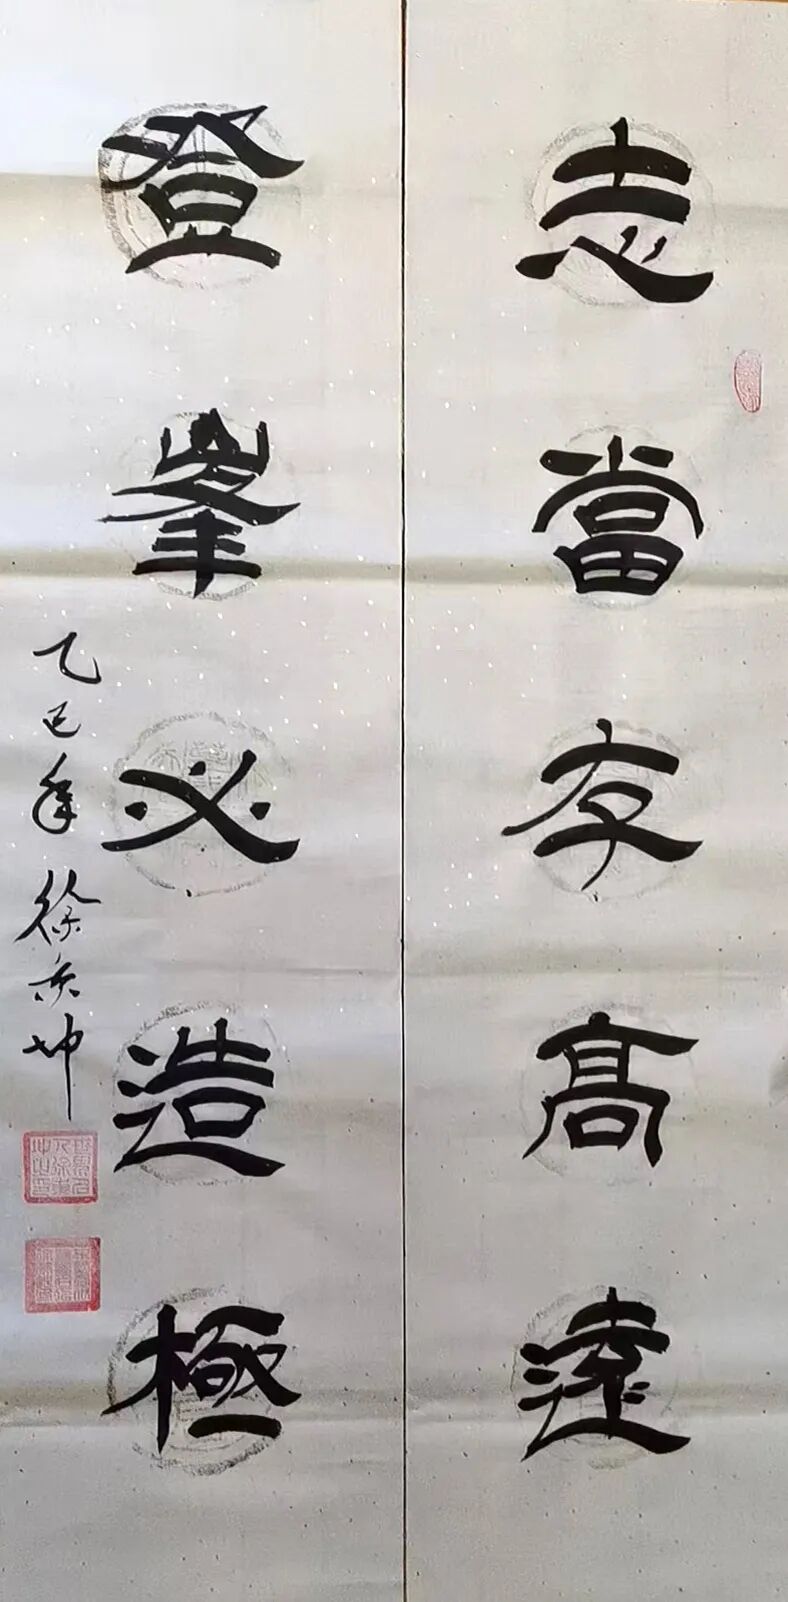 志當存高遠
登峯必造極
乙巳年 徐亥坤